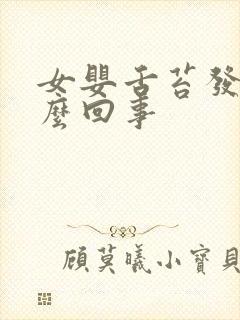 女嬰舌苔發
麼回事
顾莫曦小寶貝